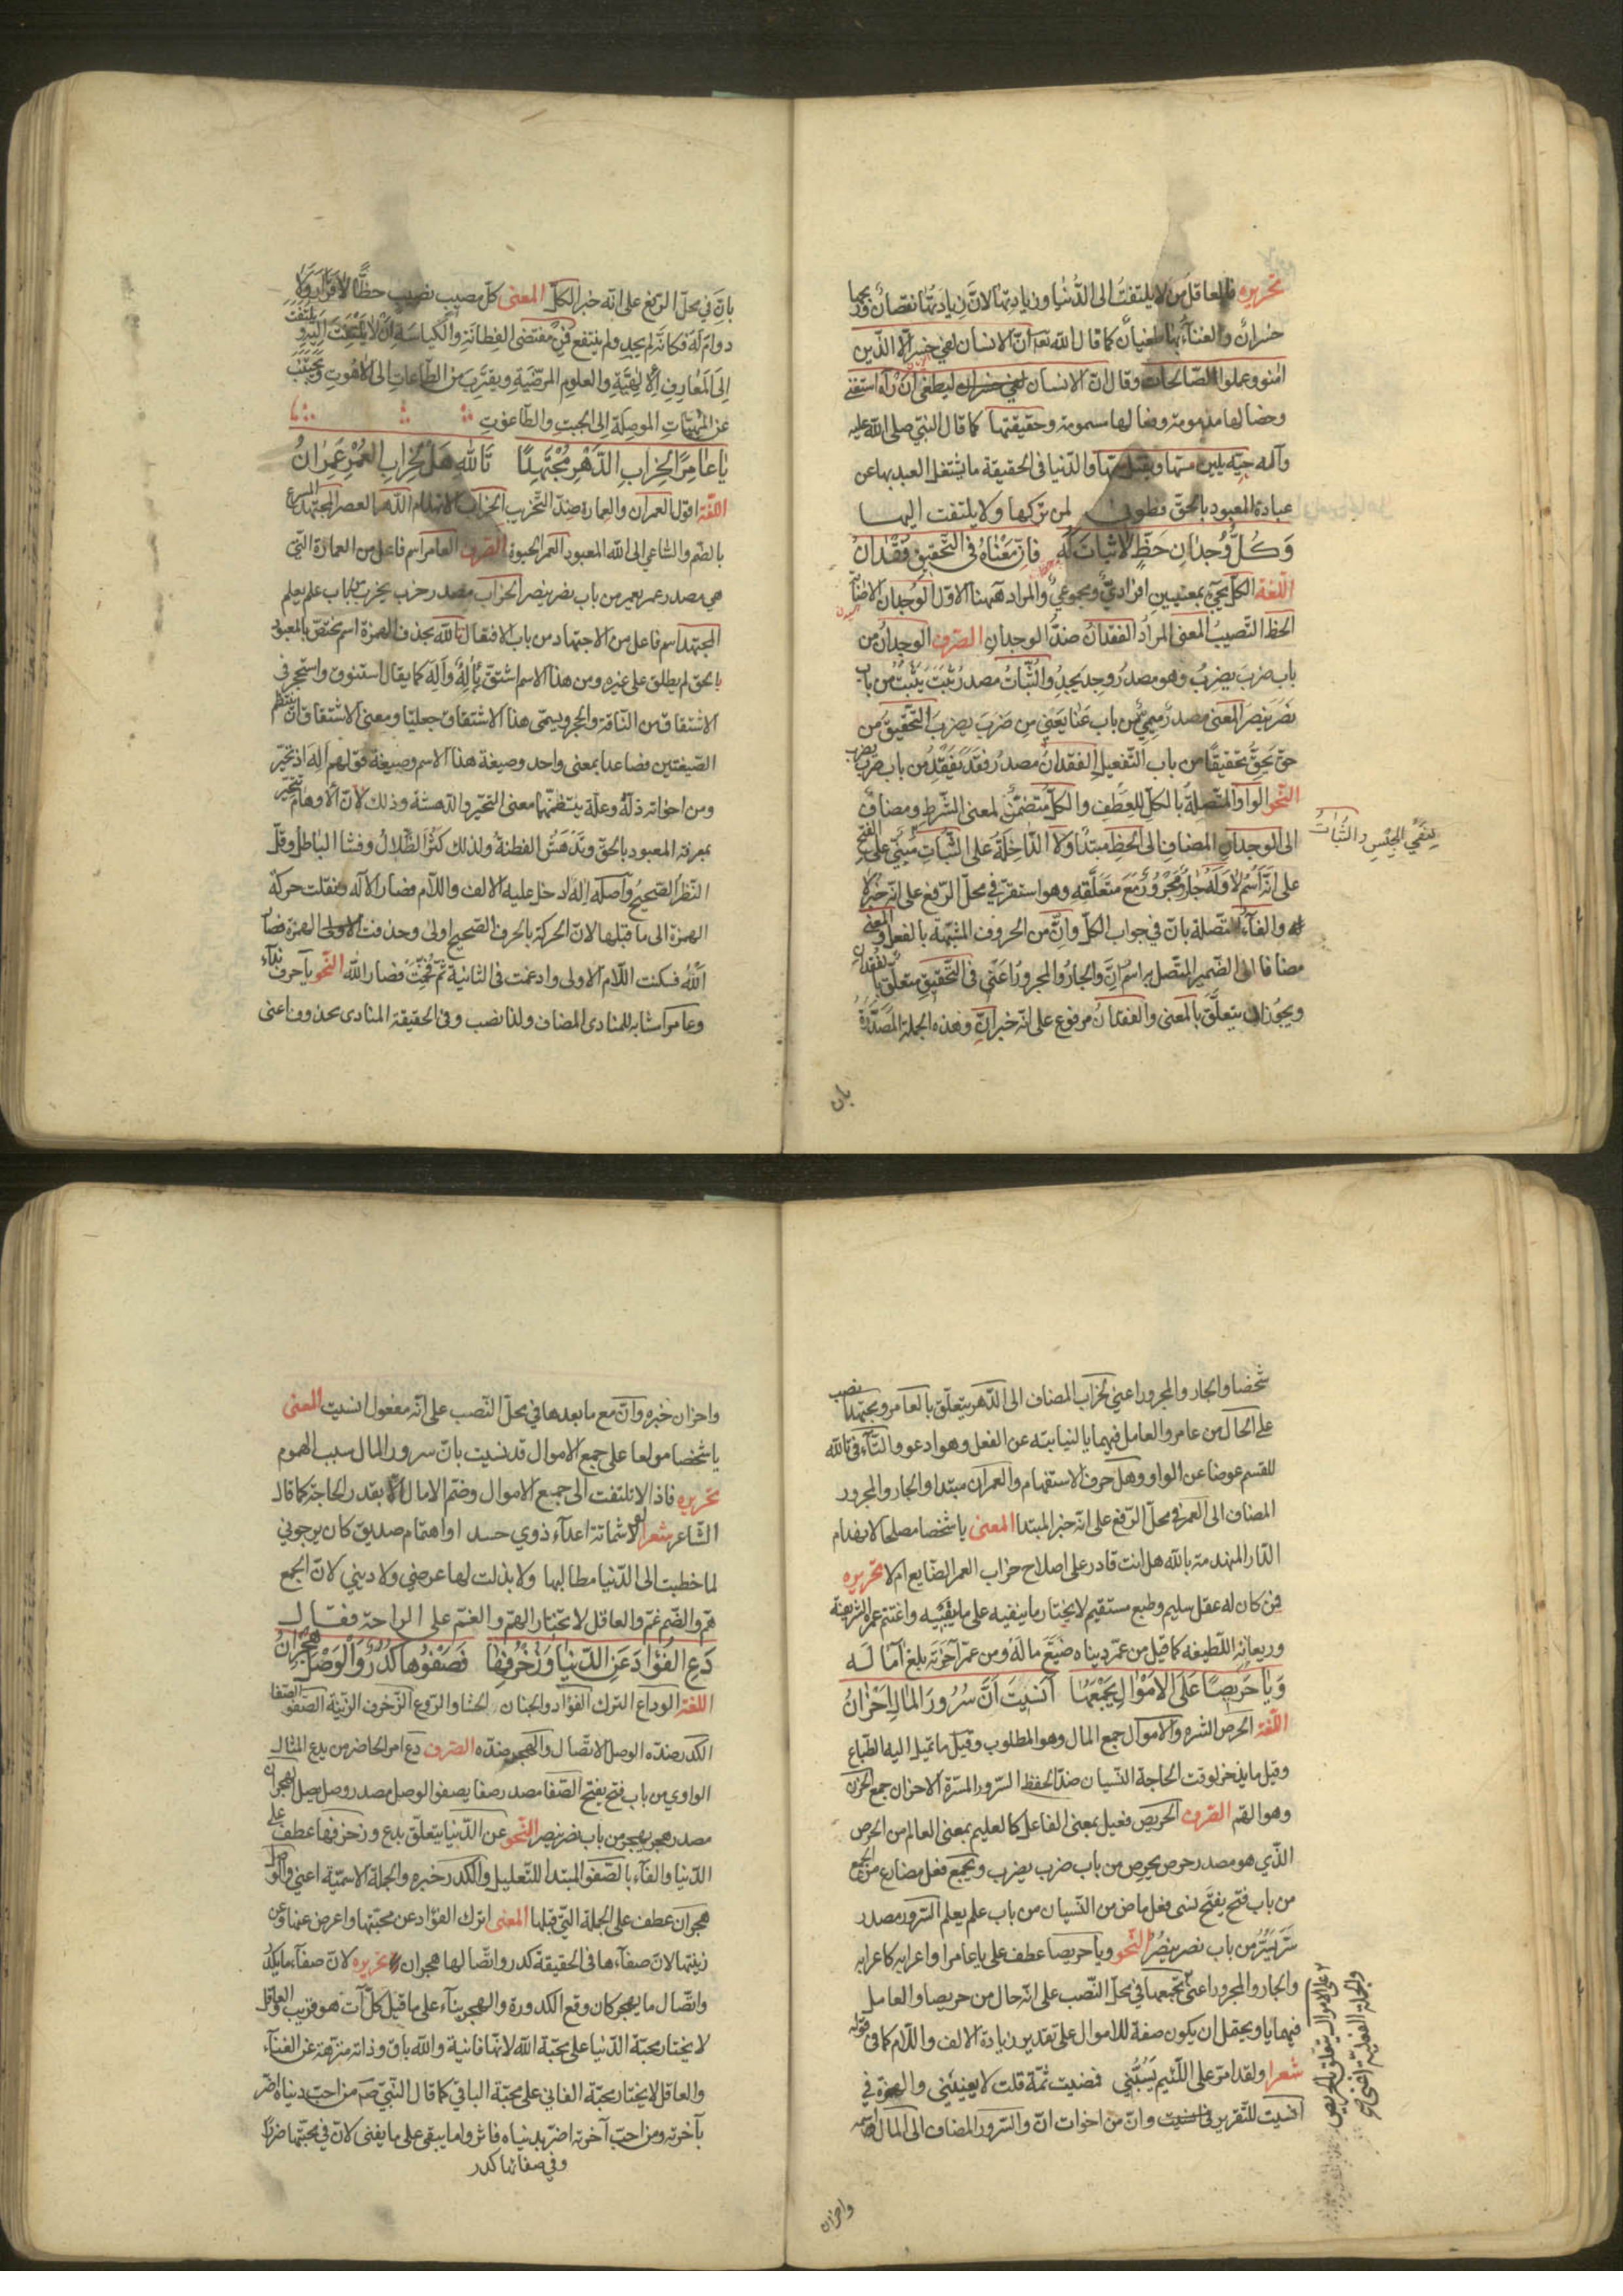 تحريره فالعاقل من لا يلتفت الى الدّنيا وزيادتها لانّ زيادتها نقصان وربحها
خسران والغناء بها طغيان كما قال الله تعه انّ الانسان لفي خسر الّا الذين
امنو وعملوا الصّالحات وقال انّ الانسان ليطغى ان رآه استغنى
وخصالها مذمومة وفصالها مسمومة وحقيقتها كما قال النبيّ صلى الله عليه
وآله حيّة يلين مسّها ويقتل سمّها والدّنيا في الحقيقة ما يشتغل العبد بها عن
عبادة المعبود بالحقّ فطوبى لمن تركها ولا يلتفت اليها
وَكُلُّ وُجْدَانِ حَظٍّ لَا ثَبَاتَ لَهُ فَاِنَّ مَعْنَاهُ فِي التَّحْقِيقِ فُقْدَانُ
اللّغة الكلّ يجيء بمعنيين افراديّ ومجموعيّ والمراد ههنا الاوّل الوجدان الاصابة
الحظّ النّصيب المعنى المراد الفقدان ضدّ الوجدان الصّرف الوجدان من
باب ضرب يضرب وهو مصدر وجد يجد والثّبات مصدر ثبت يثبت من باب
نصر ينصر المعنى مصدر ميميّ من باب عنا يعني من ضرب يضرب التّحقيق من
حقّ يحقّ تحقيقًا من باب التّفعيل الفقدان مصدر فقد يفقد من باب ضرب يضرب
النّحو الواو المتّصلة بالكلّ للعطف والكلّ متضمّن لمعنى الشّرط ومضاف
الى الوجدان المضاف الى الحظّ مبتدا ولا الدّاخلة على الثّبات مبنيّ على الفتح
لنفي الجنس والثّبات
على انّه اسم لا وله جارّ ومجرور مع متعلّقه وهو استقرّ في محلّ الرّفع على انّه خبر لا
والفاء المتّصلة بانّ في جواب الكلّ وانّ من الحروف المشبّهة بالفعل والمعنى
مضافا الى الضّمير المتّصل به اسم انّ والجارّ والمجرور اعني في التّحقيق متعلّق بالفقدان
ويجوز ان يتعلّق بالمعنى والفقدان مرفوع على انّه خبر انّ وهذه الجملة المصدّرة
بان
بانّ في محلّ الرّفع على انّه خبر الكلّ المعنى كلّ مصيب نصيب حظًّا لا قرار ولا
دوام له فكانّه لم يجد ولم ينتفع فمن مقتضى الفطانة والكياسة ان لا يلتفت اليه ويلتفت
الى المعارف الالهيّة والعلوم المرضيّة ويقترب من الطّاعات الى اللاهوت ويجتنب
عن المنهيّات الموصلة الى الجبت والطّاغوت
يَا عَامِرًا لِخِرَابِ الدَّهْرِ مُجْتَهِدًا تَاللهِ هَلْ لِخِرَابِ الْعُمْرِ عُمْرَانُ
اللّغة اقول العمران والعمارة ضدّ التّخريب الخراب الانهدام الدّهر العصر المجتهد المسرع
بالضّم والسّاعي الى الله المعبود العمر الحيوة الصّرف العامر اسم فاعل من العمارة التي
هي مصدر عمر يعمر من باب نصر ينصر الخراب مصدر خرب يخرب من باب علم يعلم
المجتهد اسم فاعل من الاجتهاد من باب الافتعال تالله بحذف الهمزة اسم يختصّ بالمعبود
بالحق لم يطلق على غيره ومن هذا الاسم اشتقّ يأله واله كما يقال استنوق واستحجر في
الاشتقاق من النّاقة والحجر ويسمّى هذا الاشتقاق جعليّا ومعنى الاشتقاق ان ينتظم
الصّيغتين فصاعدا بمعنى واحد وصيغة هذا الاسم وصيغة قولهم اله اذ تحيّر
ومن اخواته ذله وعله ينتظمهما معنى التّحيّر والدهشة وذلك لانّ الاوهام تتحيّر
بمعرفة المعبود بالحقّ وتدهش الفطنة ولذلك كثر الظّلال وفشا الباطل وقلّ
النّظر الصّحيح واصله اله ادخل عليه الالف واللّام فصار الاله ونقلت حركة
الهمزة الى ما قبلها لانّ الحركة بالحرف الصّحيح اولى وحذفت الهمزة فصار
اللّه فسكنت اللّام الاولى وادغمت في الثانية ثمّ فخّمت فصار اللّه النّحو يا حرف نداء
وعامرا مشابه للمنادى المضاف ولذا نصب وفي الحقيقة المنادى محذوف اعني
شخصا والجار والمجرور اعني لخراب المضاف الى الدّهر يتعلّق بالعامر ومجتهدا نصب
على الحال من عامر والعامل فيهما يا لنيابته عن الفعل وهو ادعو والتّاء في تالله
للقسم عوضا عن الواو وهل حرف الاستفهام والعمران مبتدا والجار والمجرور
المضاف الى العمر في محلّ الرّفع على انّه خبر المبتدا المعنى يا شخصا مصلحا لانهدام
الدّار المنهدمة بالله هل انت قادر على اصلاح خراب العمر الضّايع ام لا تحريره
فمن كان له عقل سليم وطبع مستقيم لا يختار ما ينفيه على ما يبقيه واغتنم عمره الشّريفة
وريعانه اللّطيفه كما قيل من عمّر دنياه ضيّع ماله ومن عمّر آخرته بلغ آماله
وَيَا حَرِيصًا عَلَى الْاَمْوَالِ يَجْمَعُهَا اَنَسِيتَ اَنَّ سُرُورَ الْمَالِ اَحْزَانُ
اللّغة الحرص الشّره والاموال جمع المال وهو المطلوب وقيل ما تميل اليه الطّباع
وقيل ما يدّخر لوقت الحاجة النّسيان ضدّ الحفظ السّرور المسرّة الاحزان جمع الحزن
وهو الهمّ الصّرف الحريص فعيل بمعنى الفاعل كالعليم بمعنى العالم من الحرص
الّذي هو مصدر حرص يحرص من باب ضرب يضرب ويجمع فعل مضارع من الجمع
من باب فتح يفتح نسى فعل ماض من النّسيان من باب علم يعلم السّرور مصدر
سرّ يسرّ من باب نصر ينصر النّحو ويا حريصا عطف على يا عامرا واعرابه كاعرابه
والجار والمجرور اعني يجمعها في محلّ النّصب على انّه حال من حريصا والعامل
على الاموال يتعلّق بالحريص
والجملة الفعليّة اعني
فيهما يا ويحتمل ان يكون صفة للاموال على تقدير زيادة الالف واللّام كما في قوله
شعرا ولقد امرّ على اللّئيم يسبّني فمضيت ثمّة قلت لا يعنيني والهمزة في
انسيت للتّقرير وانّ من اخوات انّ والسّرور المضاف الى المال اسمه
واحزان
واحزان خبره وانّ مع ما بعدها في محلّ النّصب على انّه مفعول انسيت المعنى
يا شخصا مولعا على جمع الاموال قد نسيت بانّ سرور المال سبب الهموم
تحريره فاذا لا تلتفت الى جميع الاموال وضمّ الامال الّا بقدر الحاجة كما قال
الشّاعر شعرا لو لا شماتة اعداء ذوي حسد او اهتمام صديق كان يرجوني
لما خطبت الى الدّنيا مطالبها ولا بذلت لها عرضي ولا ديني لانّ الجمع
همّ والضّم غمّ والعاقل لا يختار الهمّ والغمّ على الراحة فقال
دَعِ الْفُؤَادَ عَنِ الدُّنْيَا وَزُخْرُفِهَا فَصَفْوُهَا كَدَرٌ وَالْوَصْلُ هِجْرَانُ
اللّغة الوداع الترك الفؤاد والجنان الحشا والرّوع الزّخرف الزّينة الصّفو الصّفا
الكدر ضدّه الوصل الاتّصال والهجر ضدّه الصّرف دع امر الحاضر من يدع المثال
الواوي من باب فتح يفتح الصّفا مصدر صفا يصفو الوصل مصدر وصل يصل الهجران
مصدر هجر يهجر من باب نصر ينصر النّحو عن الدّنيا يتعلّق بدع وزخرفها عطف على
الدّنيا والفاء بالصّفو المبتدا للتّعليل والكدر خبره والجملة الاسميّة اعني والوصل
هجران عطف على الجملة التي قبلها المعنى اترك الفؤاد عن محبّتها واعرض عنها وعن
زينتها لانّ صفاءها في الحقيقة كدر واتّصالها هجران تحريره لانّ صفاء ما يكدر
واتّصال ما يهجر كان وقع الكدورة والهجر بناء على ما قيل كلّ آت هو قريب والعاقل
لا يختار محبّة الدّنيا على محبّة الله لانّها فانية والله باق وذاته منزهة عن الفناء
والعاقل لا يختار محبّة الفاني على محبّة الباقي كما قال النّبيّ صم من احبّ دنياه اضرّ
بآخرته ومن احبّ آخرته اضرّ بدنياه فاثروا ما يبقى على ما يفنى لانّ في محبّتها ضررا
وفي صفائها كدر